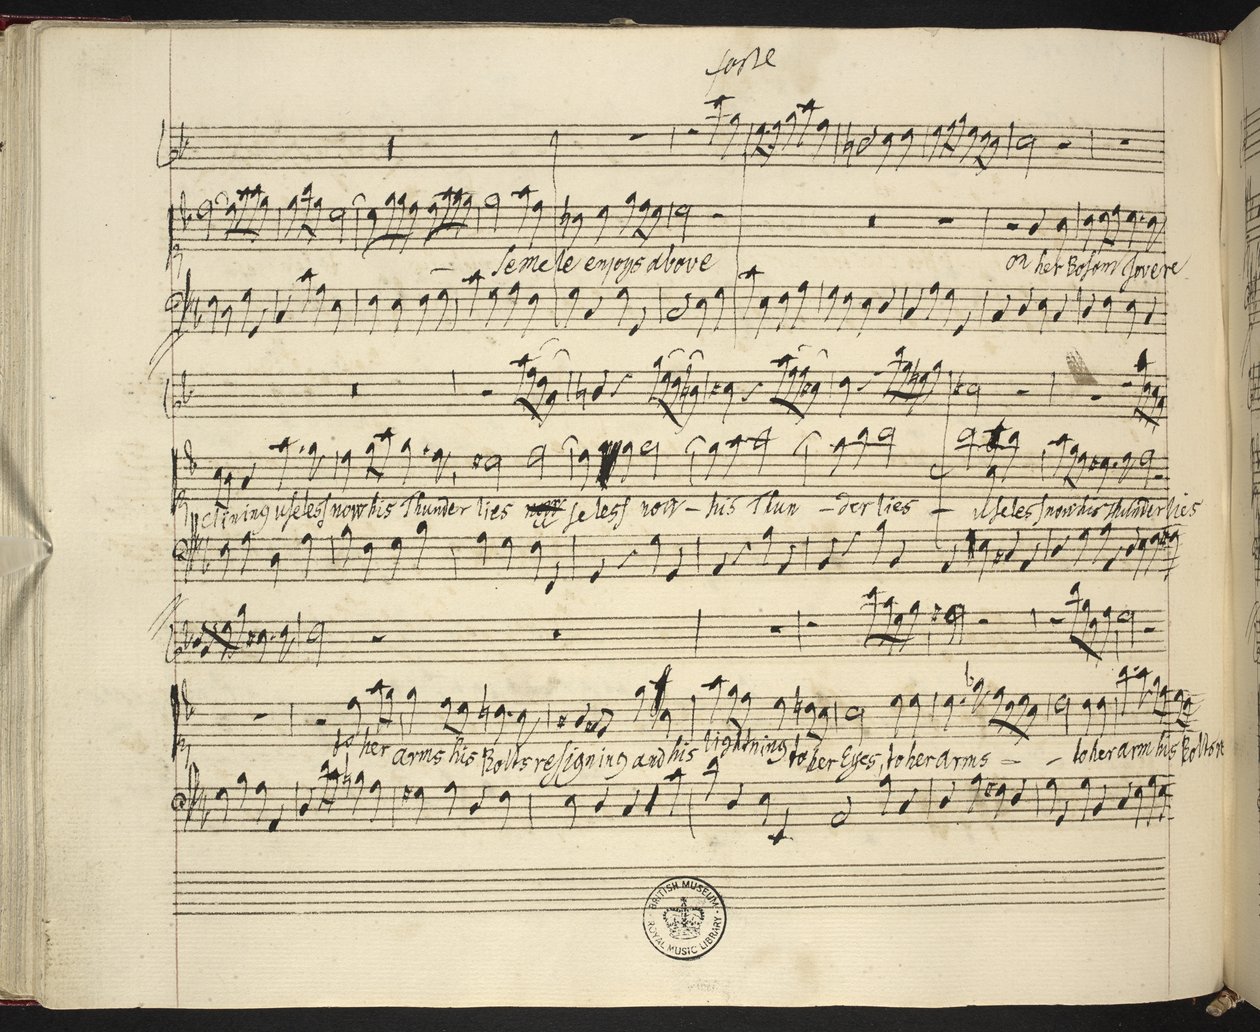 forte
— Semele enjoys above on her Bosom Jove re
clining useless now his Thunder lies seless now — his Thun — der lies — useless now his Thunder lies
to her arms his Bolts resigning and his lightning to her Eyes, to her arms — — to her arm his Bolts re
BRITISH MUSEUM
ROYAL MUSIC LIBRARY